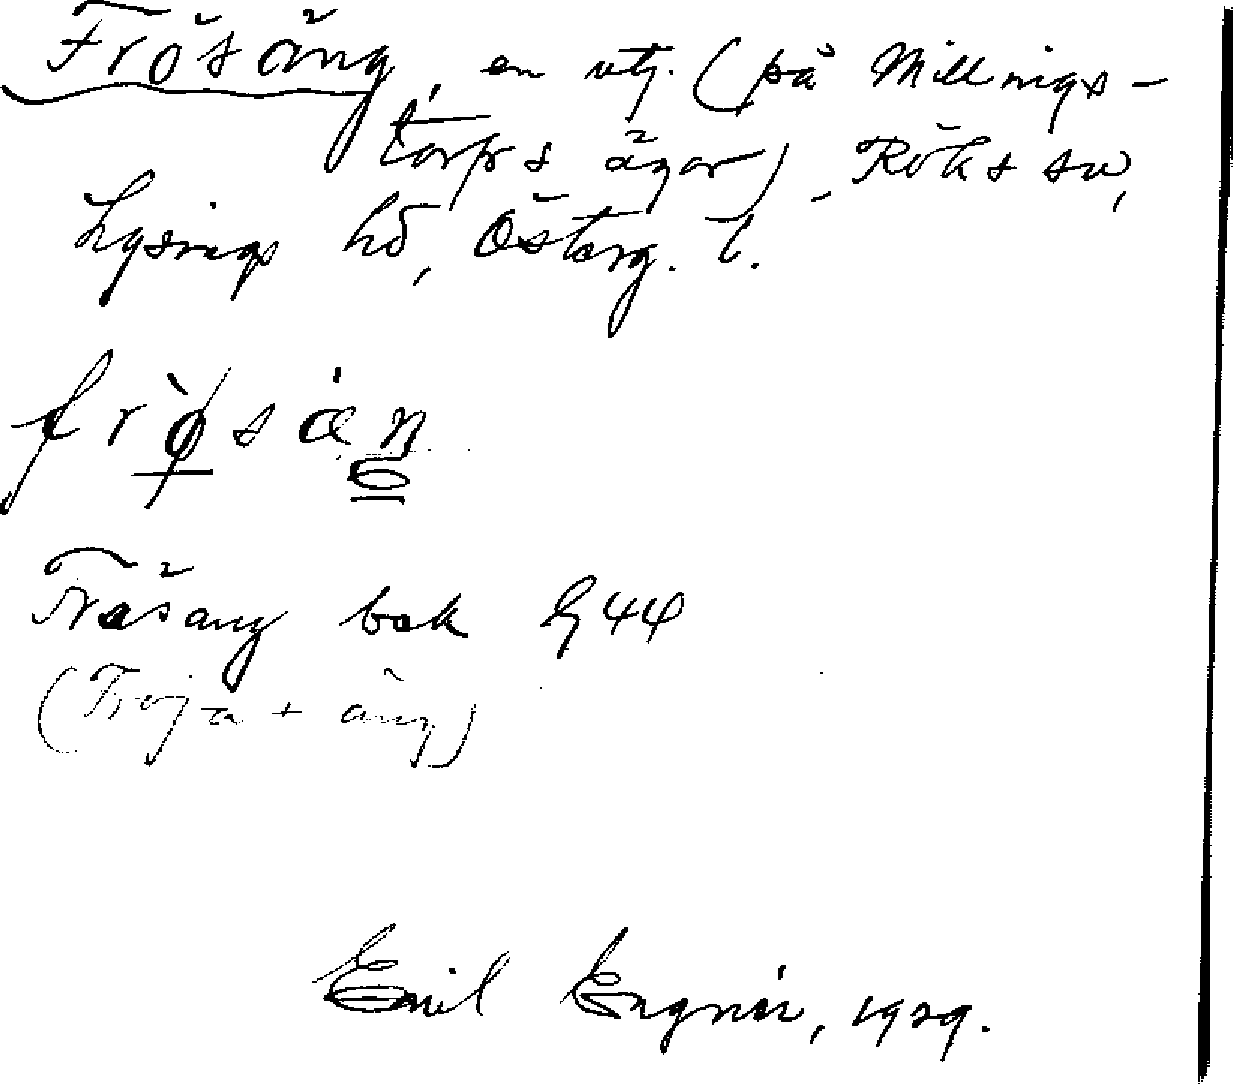 Frösäng, en utj. (på Millings-
torps ägor), Röks sn,
Lysings hd, Österg. l.
frø̀sàŋ
Fräsäng bok G 44
(Fröja + äng)
Emil Engnér, 1929.